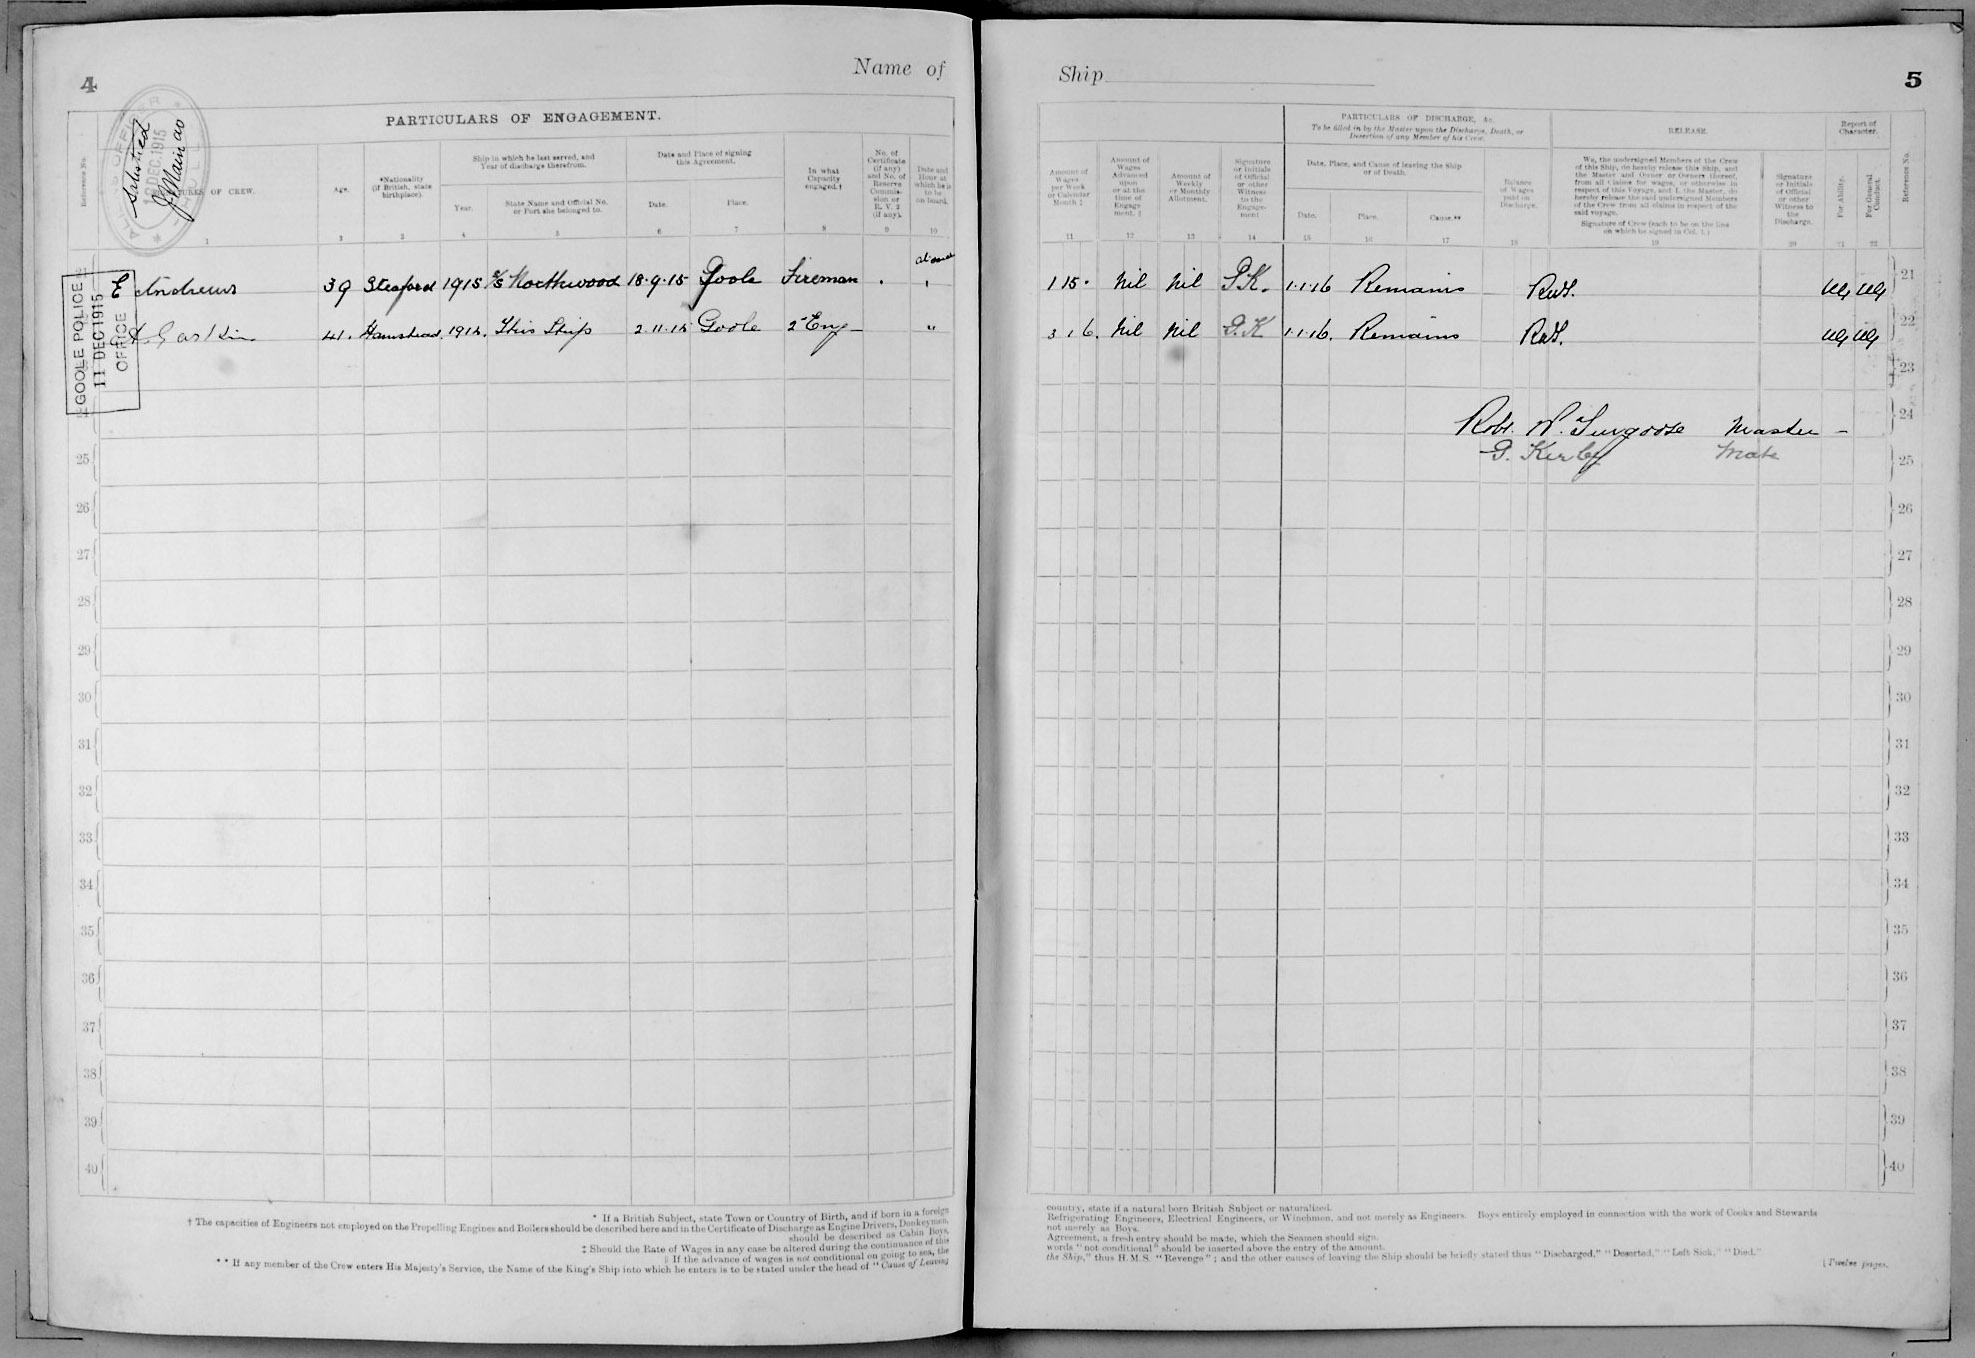 4
Name of
PARTICULARS OF ENGAGEMENT.
Satisfied
DEC.1915
HULL
Reference No.
OF CREW.
Age.
*Nationality
(if British, state
birthplace).
Ship in which he last served, and
Year of discharge therefrom.
Year.
State Name and Official No.
or Port she belonged to.
Date and Place of signing
this Agreement.
Date.
Place.
In what
Capacity
engaged.†
No. of
Certificate
(if any)
and No. of
Reserve
Commis-
sion or
R. V. 2
(if any).
Date and
Hour at
which he is
to be
on board.
1 2 3 4 5 6 7 8 9 10
E Andrews 39 Sleaford 1915 S/S Northwood 18.9.15 Goole Fireman at once
A. Gaskin 41. 1914. This Ship 2.11.15 Goole 2nd Eng "
GOOLE POLICE
11 DEC 1915
OFFICE
25
26
27
28
29
30
31
32
33
34
35
36
37
38
39
40
* If a British Subject, state Town or Country of Birth, and if born in a foreign
† The capacities of Engineers not employed on the Propelling Engines and Boilers should be described here and in the Certificate of Discharge as Engine Drivers, Donkeymen,
should be described as Cabin Boys,
‡ Should the Rate of Wages in any case be altered during the continuance of this
§ If the advance of wages is not conditional on going to sea, the
** If any member of the Crew enters His Majesty's Service, the Name of the King's Ship into which he enters is to be stated under the head of "Cause of Leaving
Ship
5
Amount of
Wages
per Week
or Calendar
Month ‡
Amount of
Wages
Advanced
upon
or at the
time of
Engage-
ment. §
Amount of
Weekly
or Monthly
Allotment.
Signature
or Initials
of Official
or other
Witness
to the
Engage-
ment
PARTICULARS OF DISCHARGE, &c.
To be filled in by the Master upon the Discharge, Death, or
Desertion of any Member of his Crew.
Date, Place, and Cause of leaving the Ship
or of Death.
Date.
Place.
Cause.**
Balance
of Wages
paid on
Discharge.
RELEASE.
We, the undersigned Members of the Crew
of this Ship, do hereby release this Ship, and
the Master and Owner or Owners thereof,
from all Claims for wages, or otherwise in
respect of this Voyage, and I, the Master, do
hereby release the said undersigned Members
of the Crew from all claims in respect of the
said voyage.
Signature of Crew (each to be on the line
on which be signed in Col. 1.)
Signature
or Initials
of Official
or other
Witness to
the
Discharge.
Report of
Character.
For Ability.
For General
Conduct.
Reference No.
11 12 13 14 15 16 17 18 19 20 21 22
1 15 . Nil Nil G.K. 1.1.16 Remains VG VG 21
3 1 6. Nil Nil G.K 1.1.16. Remains VG VG 22
23
24
Robt. W. Surgoose Master -
G. Kirby Mate
25
26
27
28
29
30
31
32
33
34
35
36
37
38
39
40
country, state if a natural born British Subject or naturalized.
Refrigerating Engineers, Electrical Engineers, or Winchmen, and not merely as Engineers. Boys entirely employed in connection with the work of Cooks and Stewards
not merely as Boys.
Agreement, a fresh entry should be made, which the Seamen should sign.
words "not conditional" should be inserted above the entry of the amount.
the Ship," thus H.M.S. "Revenge"; and the other causes of leaving the Ship should be briefly stated thus "Discharged," "Deserted," "Left Sick," "Died."
[Twelve pages.